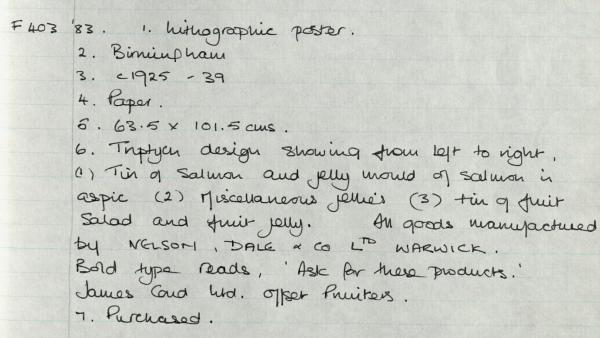 F 403 '83. 1. Lithographic poster.
2. Birmingham
3. c1925 - 39
4. Paper.
5. 63.5 x 101.5 cms.
6. Triptych design showing from left to right,
(1) Tin of Salmon and jelly mould of salmon in
aspic (2) Miscellaneous jellies (3) tin of fruit
Salad and fruit jelly. All goods manufactured
by NELSON, DALE & CO LTD WARWICK.
Bold type reads, 'Ask for these products.'
James Cond Ltd. Offset Printers.
7. Purchased.